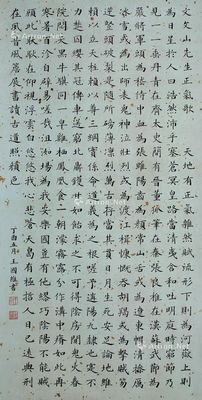 文文山先生正氣歌 天地有正氣雜然賦流形下則為河嶽上則
為日星於人曰浩然沛乎塞蒼冥皇路當清夷含和吐明庭時窮節乃
見一一垂丹青在齊太史簡在晉董狐筆在秦張良椎在漢蘇武節為
嚴將軍頭為嵇侍中血為張睢陽齒為顏常山舌或為遼東帽清操厲
冰雪或為出師表鬼神泣壯烈或為渡江楫慷慨吞胡羯或為擊賊笏
逆豎頭破裂是氣所磅礴凜烈萬古存當其貫日月生死安足論地維
賴以立天柱賴以尊三綱實係命道義為之根嗟予遘陽九隸也實不
力楚囚纓其冠傳車送窮北鼎鑊甘如飴求之不可得陰房闃鬼火春
院閟天黑牛驥同一皁雞棲鳳凰食一朝濛霧露分作溝中瘠如此再
寒暑百沴自辟易嗟哉沮洳場為我安樂國豈有他繆巧陰陽不能賊
顧此耿耿在仰視浮雲白悠悠我心悲蒼天曷有極哲人日已遠典刑
在夙昔風簷展書讀古道照顏色
丁酉五月王國書